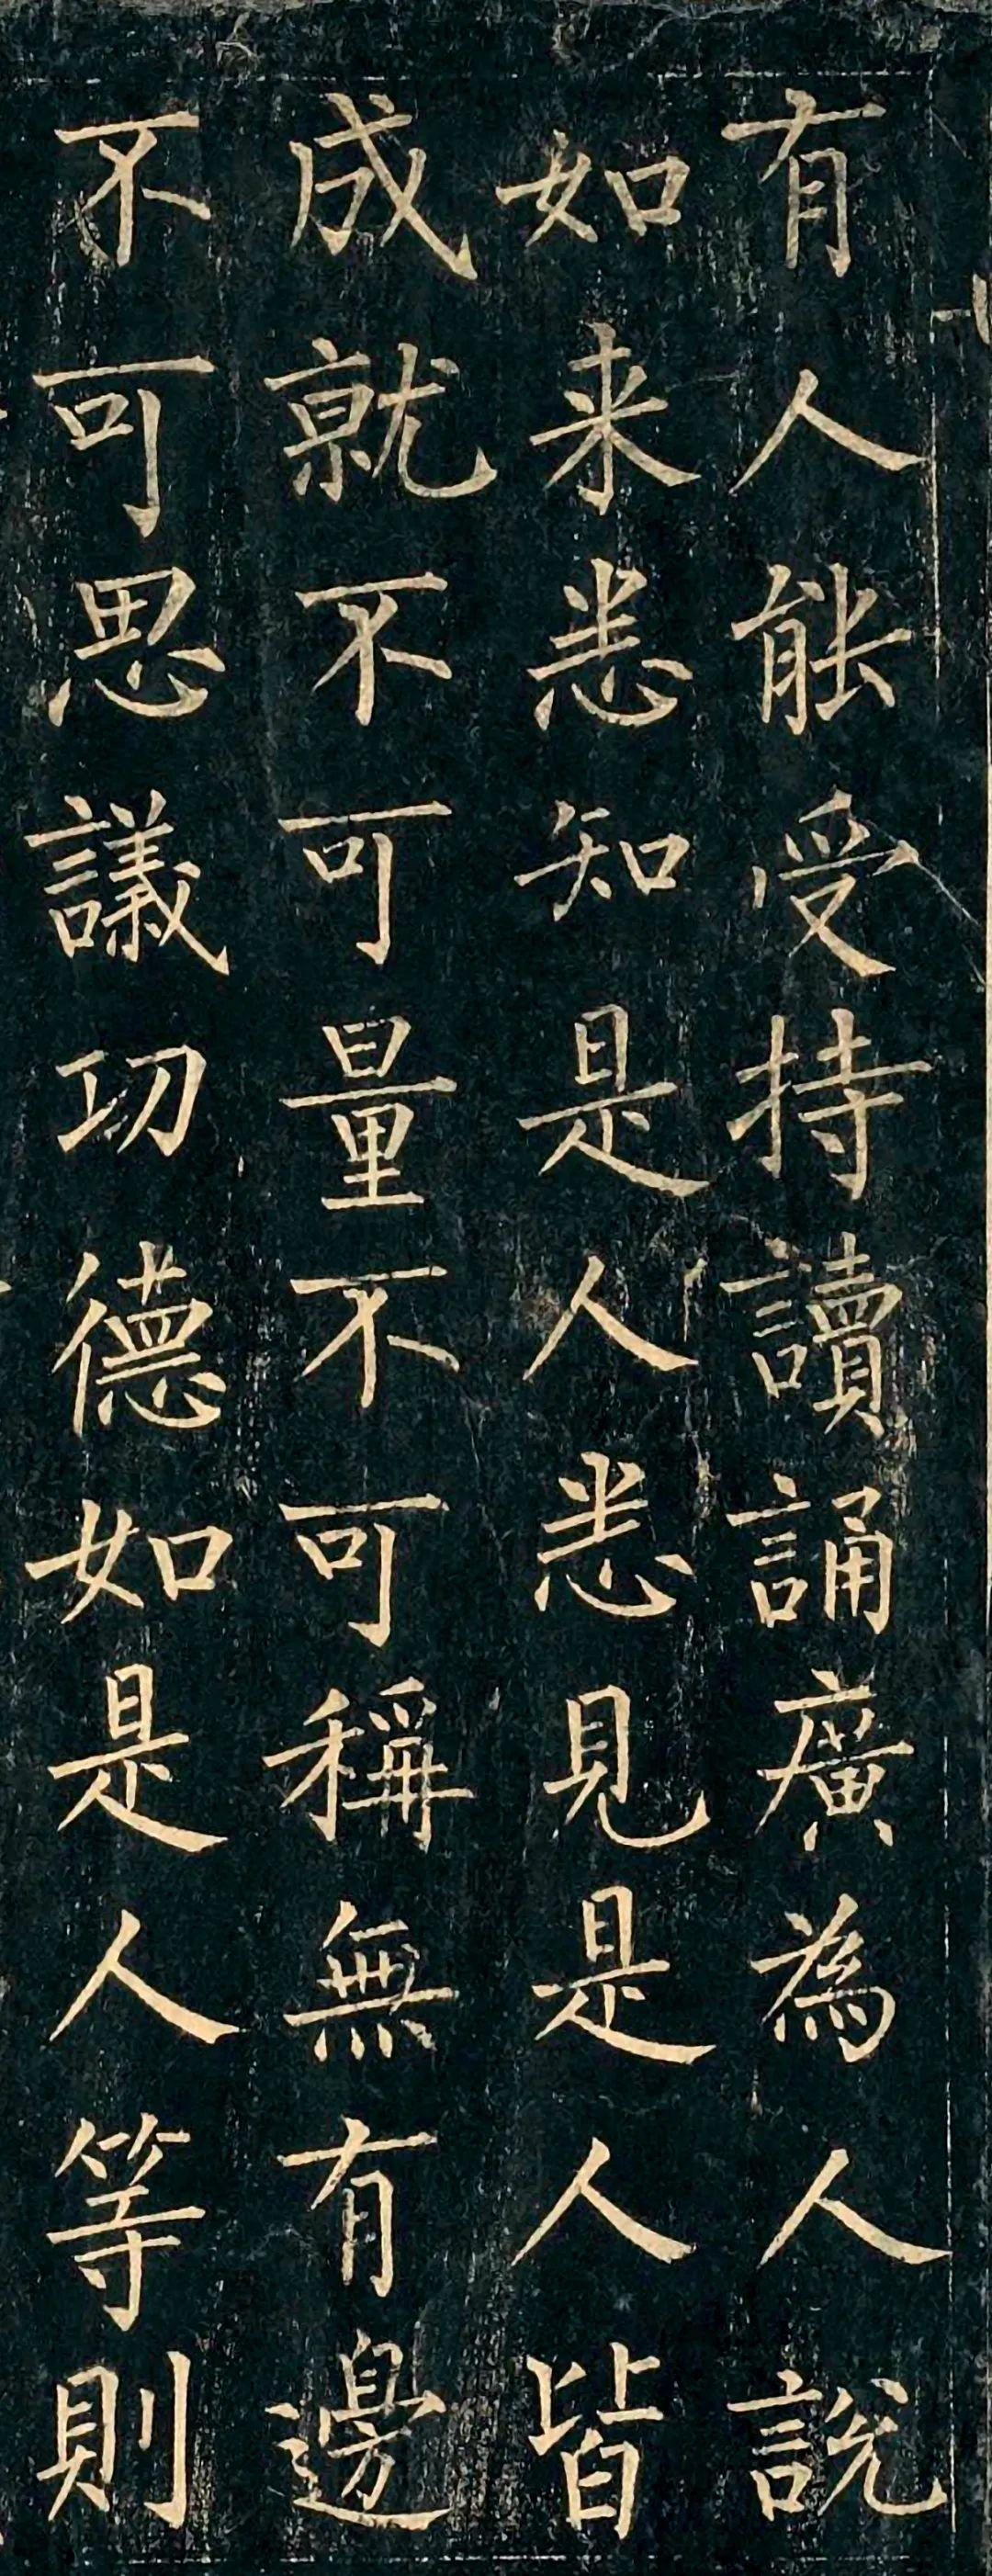 有人能受持讀誦廣為人說
如来悉知是人悉見是人皆
成就不可量不可稱無有邊
不可思議功德如是人等則